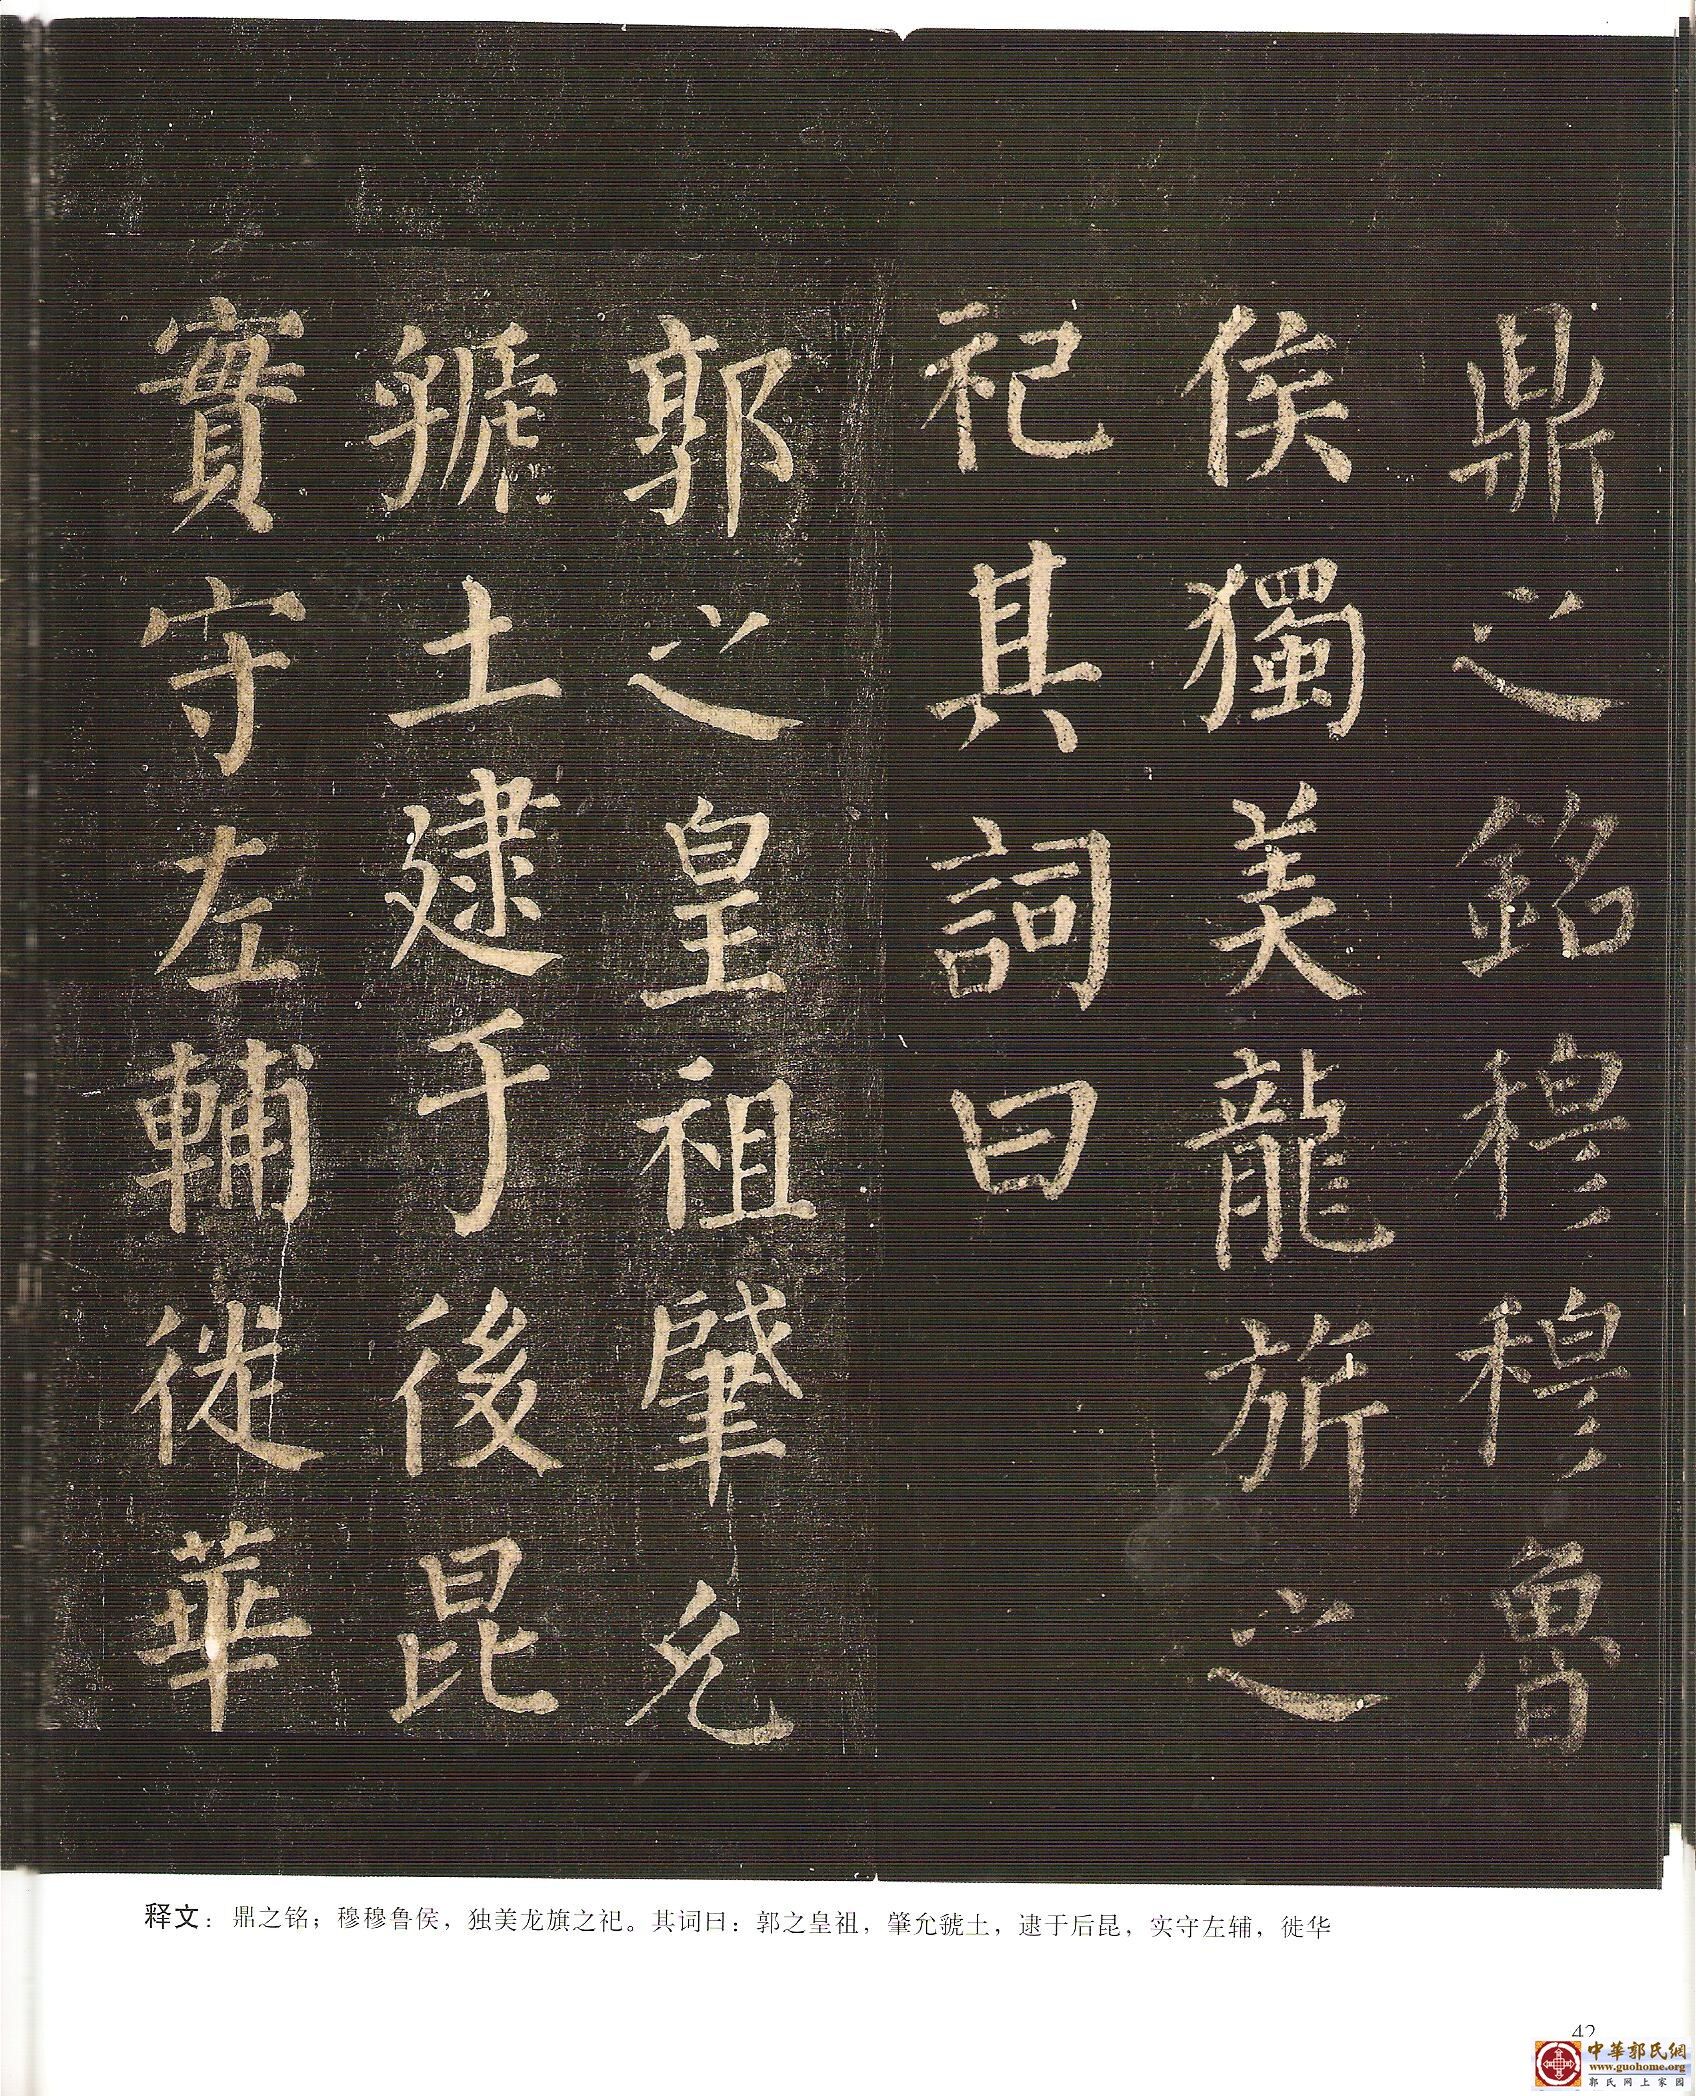 鼎之銘穆穆魯
侯獨美龍旂之
祀其詞曰
郭之皇祖肇允
虢土逮于後昆
實守左輔徙華
释文：鼎之铭；穆穆鲁侯，独美龙旗之祀。其词曰：郭之皇祖，肇允虢土，逮于后昆，实守左辅，徙华
42
中華郭氏網
www.guohome.org
郭氏网上家园